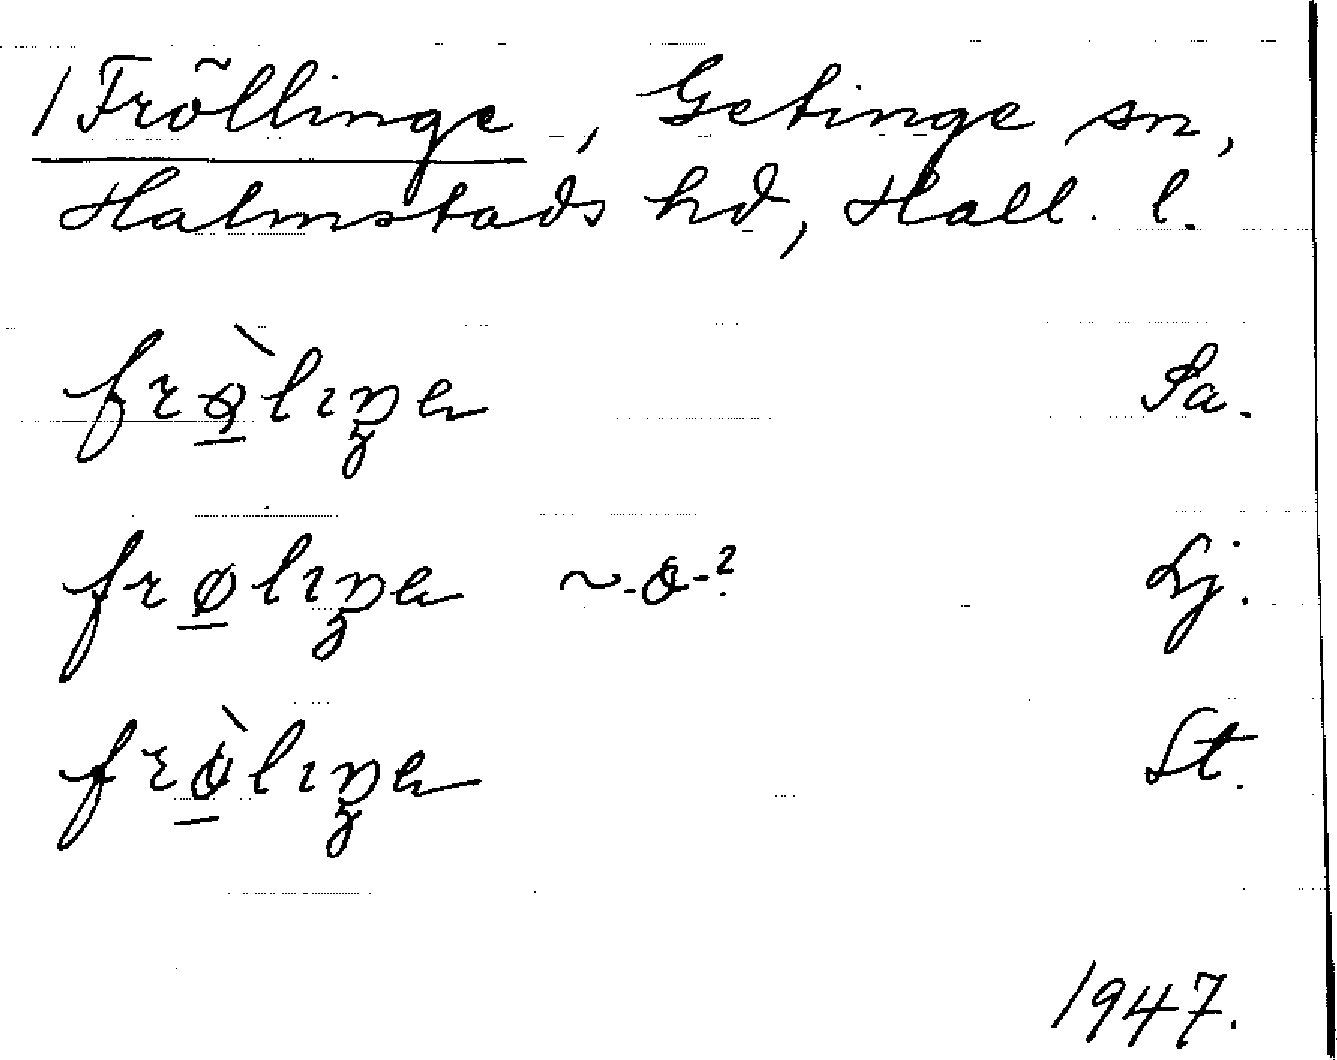 1 Fröllinge, Getinge sn,
Halmstads hd, Hall. l.
frø̀lıŋɛ Sa.
frølıŋɛ ~ -ɵ-? Lj.
frø̀lıŋɛ St.
1947.